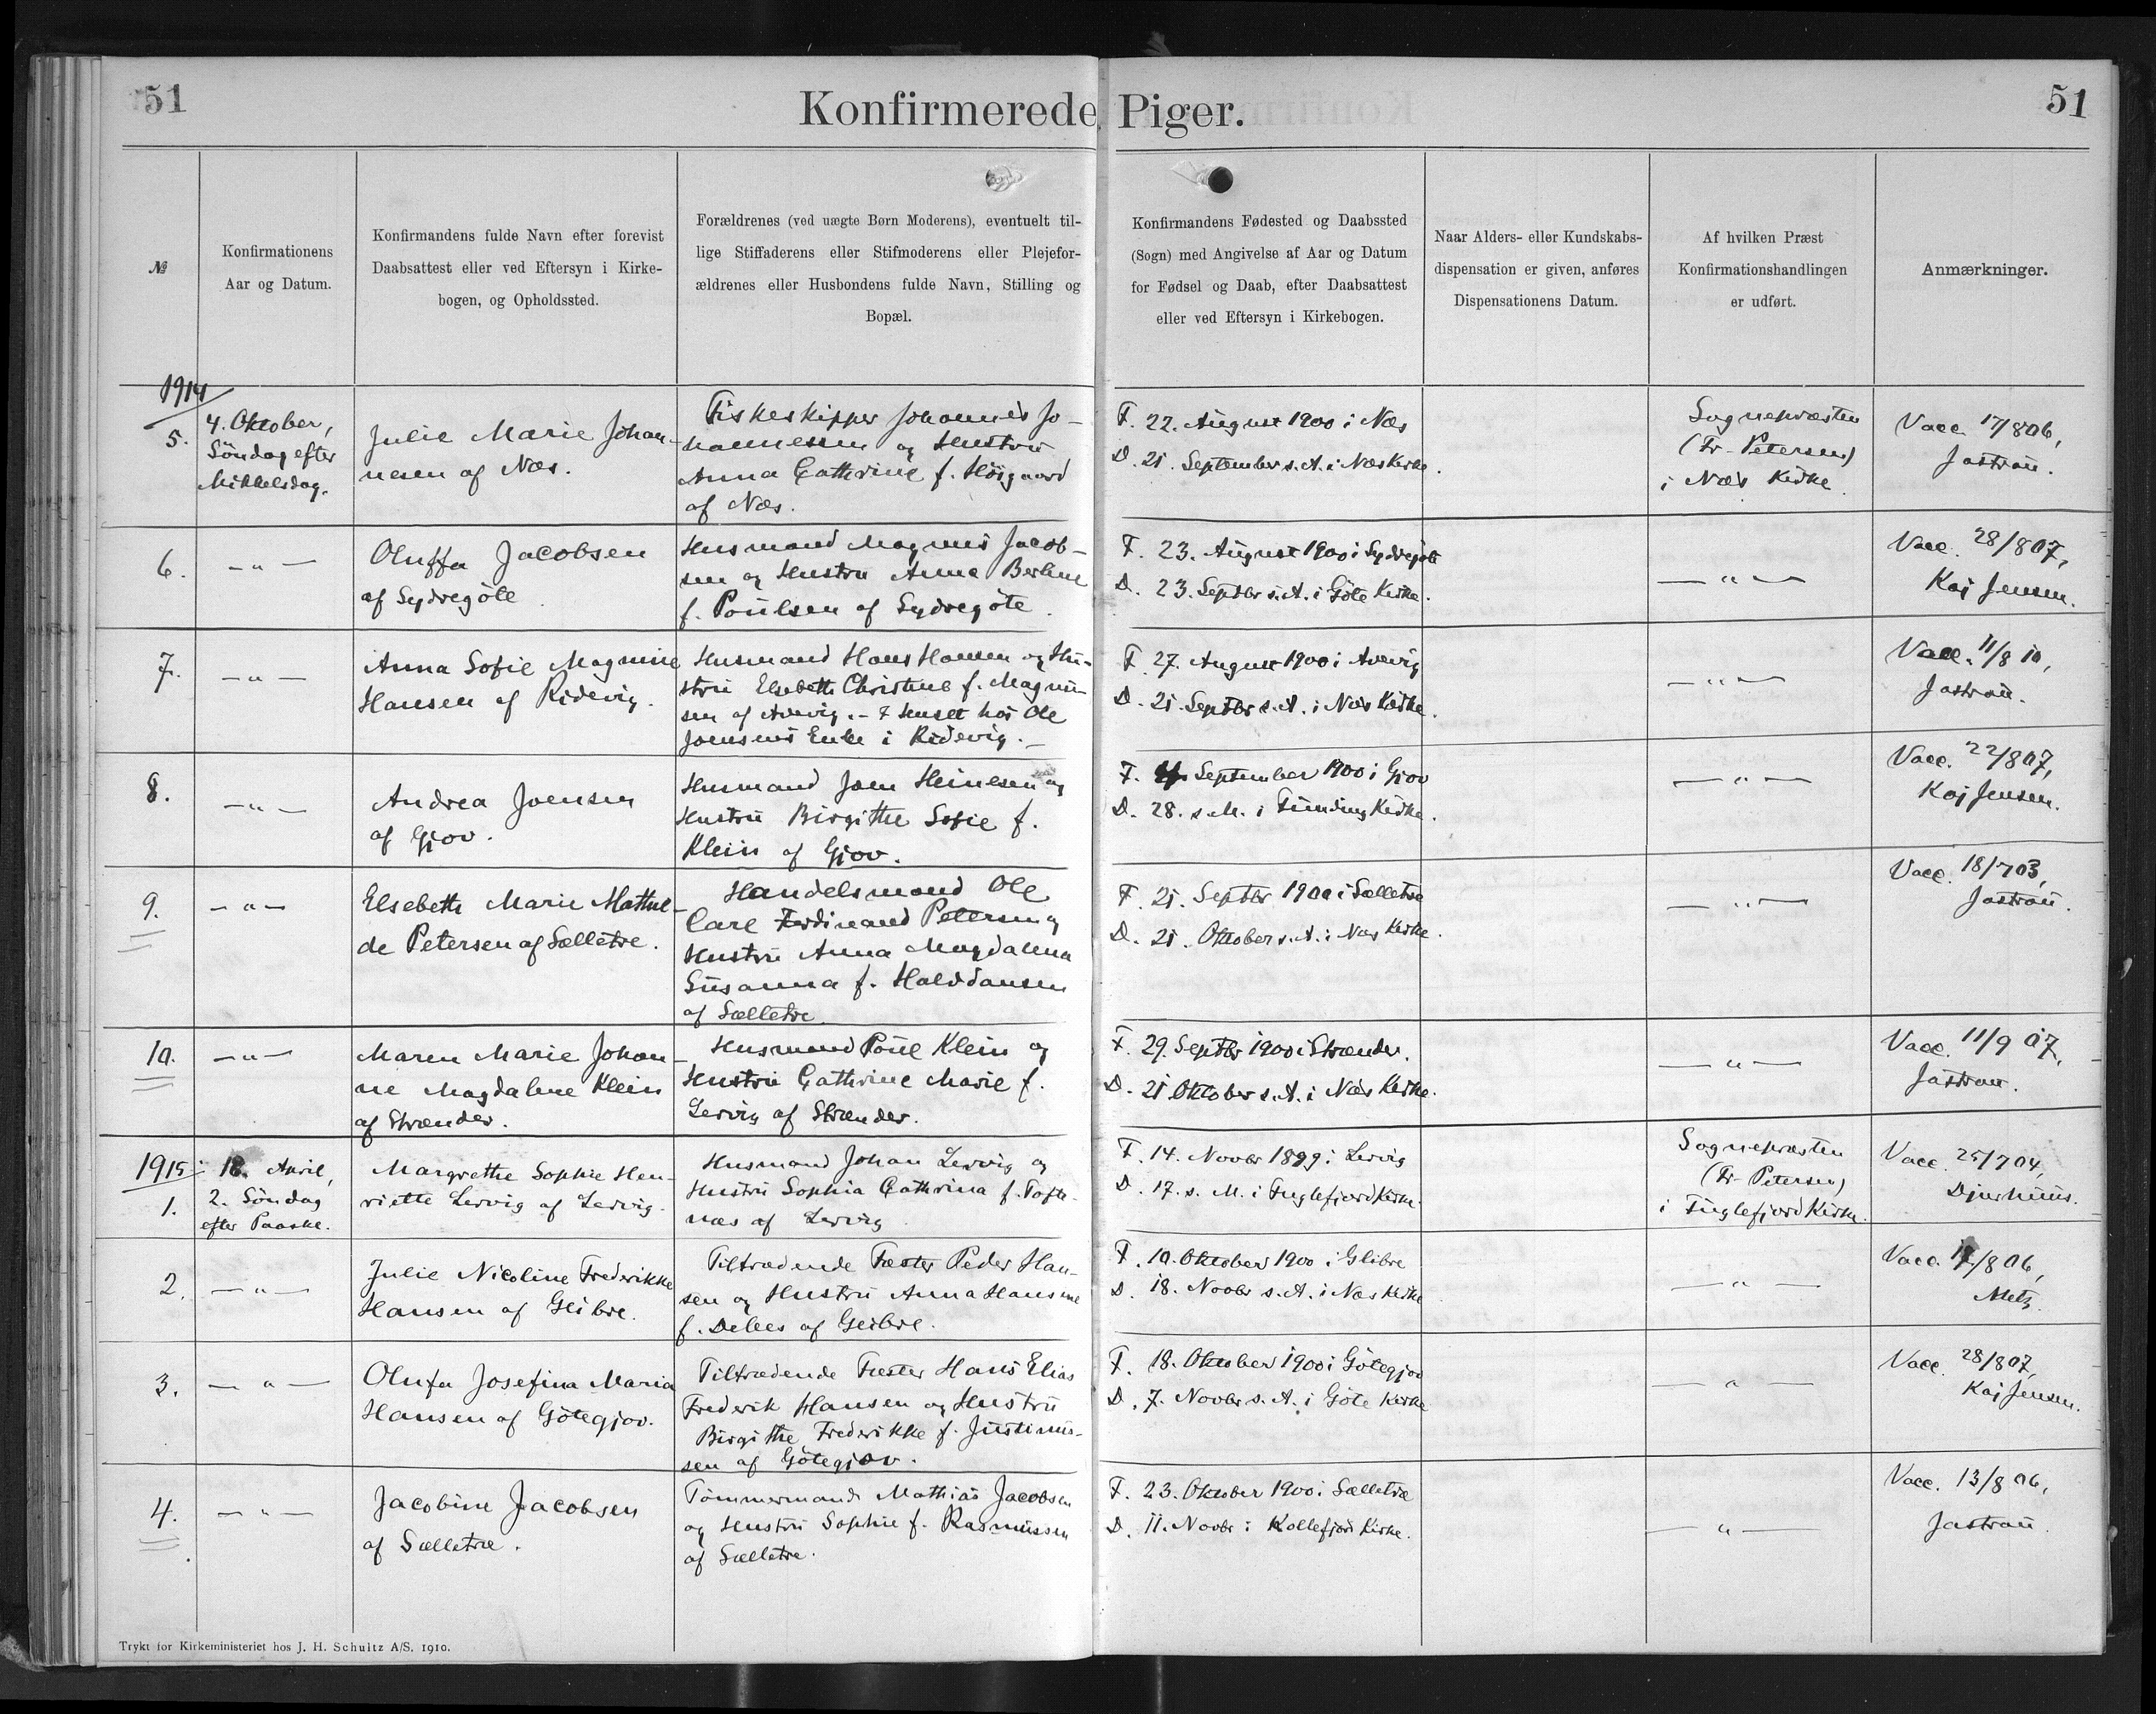 51
Konfirmerede Piger.
51
№
Konfirmationens
Aar og Datum.
Konfirmandens fulde Navn efter forevist
Daabsattest eller ved Eftersyn i Kirke-
bogen, og Opholdssted.
Forældrenes (ved uægte Børn Moderens), eventuelt til-
lige Stiffaderens eller Stifmoderens eller Plejefor-
ældrenes eller Husbondens fulde Navn, Stilling og
Bopæl.
Konfirmandens Fødested og Daabssted
(Sogn) med Angivelse af Aar og Datum
for Fødsel og Daab, efter Daabsattest
eller ved Eftersyn i Kirkebogen.
Naar Alders- eller Kundskabs-
dispensation er given, anføres
Dispensationens Datum.
Af hvilken Præst
Konfirmationshandlingen
er udført.
Anmærkninger.
1914
5.
4. Oktober,
Söndag efter
Mikkelsdag.
Julie Marie Johan-
nesen af Næs.
Fiskeskipper Johannes Jo-
hannessen og Hustru
Anna Cathrine f. Höjgaard
af Næs.
F. 22. August 1900 i Næs
D. 21. September s. A. i Næs Kirke.
Sognepræsten
(Fr. Petersen)
i Næs Kirke.
Vacc. 17/8 06,
Jastrau.
6.
— " —
Oluffa Jacobsen
af Sydregöte
Husmand Magnus Jacob-
sen og Hustru Anna Berline
f. Poulsen af Sydregöte.
F. 23. August 1900 i Sydregöte
D. 23. Septbr s. A. i Göte Kirke.
— " —
Vacc. 28/8 07,
Kaj Jensen.
7.
— " —
Anna Sofie Magnine
Hansen af Ridevig.
Husmand Hans Hansen og Hu-
stru Elsebeth Christine f. Magnu-
sen af Avevig. – I Huset hos Ole
Joensens Enke i Ridevig. –
F. 27. August 1900 i Avevig
D. 21. Septbr s. A. i Næs Kirke.
— " —
Vacc. 11/8 10,
Jastrau.
8.
— " —
Andrea Joensen
af Gjov.
Husmand Joen Heinesen og
Hustru Birgithe Sofie f.
Klein af Gjov.
F. September 1900 i Gjov
D. 28. s. M. i Funding Kirke.
— " —
Vacc. 22/8 07,
Kaj Jensen.
9.
— " —
Elsebeth Marie Mathil-
de Petersen af Sælletræ.
Handelsmand Ole
Carl Ferdinand Petersen og
Hustru Anna Magdalena
Susanna f. Halddansen
af Sælletræ.
F. 21. Septbr 1900 i Sælletræ
D. 21. Oktober s. A. i Næs Kirke.
— " —
Vacc. 18/7 03,
Jastrau.
10.
— " —
Maren Marie Johan-
ne Magdalene Klein
af Strænder.
Husmand Poul Klein og
Hustru Cathrine Marie f.
Lervig af Strænder.
F. 29. Septbr 1900 i Strænder.
D. 21 Oktober s. A. i Næs Kirke.
— " —
Vacc. 11/9 07,
Jastrau.
1915
1.
18. April,
2. Söndag
efter Paaske.
Margrethe Sophie Hen-
riette Lervig af Lervig.
Husmand Johan Lervig og
Hustru Sophia Cathrina f. Tofte-
næs af Lervig
F. 14. Novbr 1899 i Lervig
D. 17. s. M. i Fuglefjord Kirke.
Sognepræsten
(Fr. Petersen)
i Fuglefjord Kirke.
Vacc. 25/7 04,
Djurhuus.
2.
— " —
Julie Nicoline Frederikke
Hansen af Glibre.
Tiltrædende Fæster Peder Han-
sen og Hustru Anna Hansine
f. Debes af Glibre.
F. 10. Oktober 1900 i Glibre
D. 18. Novbr s. A. i Næs Kirke
— " —
Vacc. 17/8 06,
Metz.
3.
— " —
Olufa Josefina Maria
Hansen af Götegjov.
Tiltrædende Fæster Hans Elias
Frederik Hansen og Hustru
Birgithe Frederikke f. Justinus-
sen af Götegjov.
F. 18. Oktober 1900 i Götegjov
D. 7. Novbr s. A. i Göte Kirke
— " —
Vacc. 28/8 07,
Kaj Jensen.
4.
— " —
Jacobine Jacobsen
af Sælletræ.
Tömmermand Mathias Jacobsen
og Hustru Sophie f. Rasmussen
af Sælletræ.
F. 23. Oktober 1900 i Sælletræ
D. 11. Novbr i Kollefjord Kirke.
— " —
Vacc. 13/8 06,
Jastrau.
Trykt for Kirkeministeriet hos J. H. Schultz A/S. 1910.